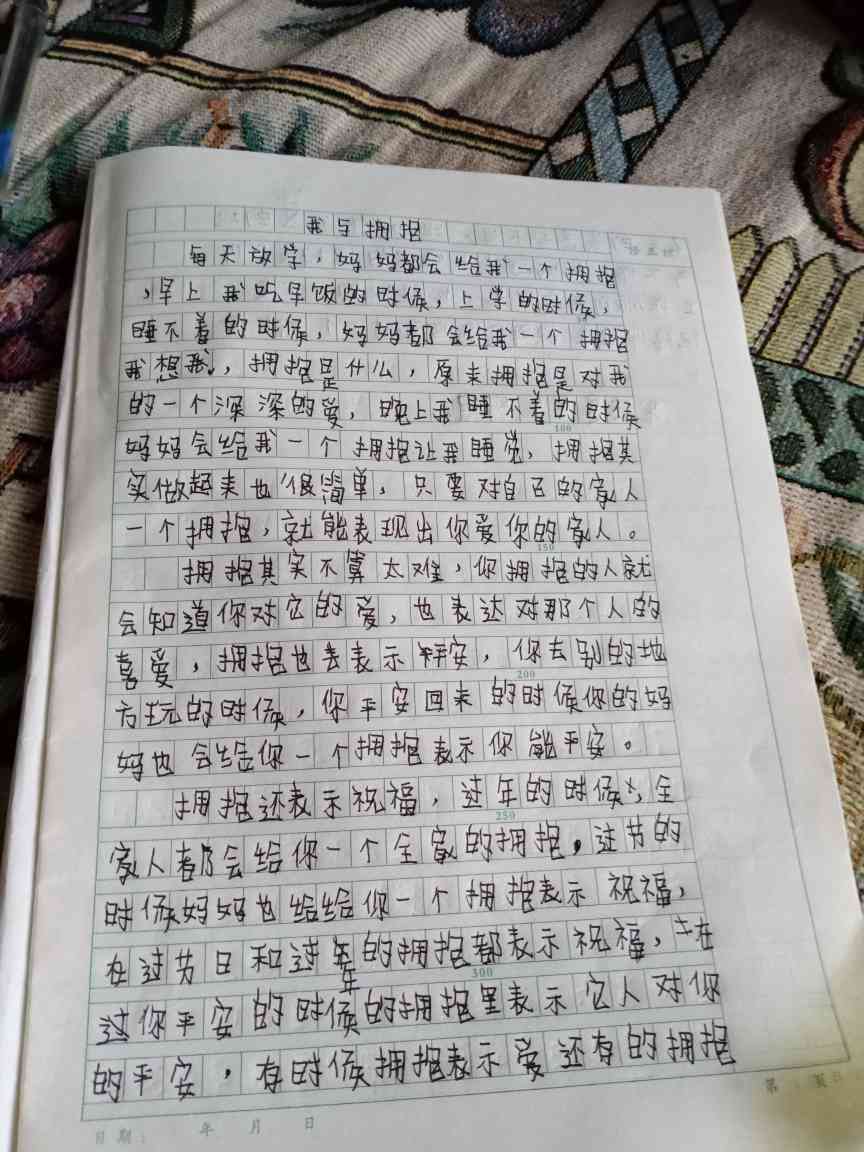 我与拥抱
每天放学，妈妈都会给我一个拥抱
，早上我吃早饭的时候，上学的时候，
睡不着的时候，妈妈都会给我一个拥抱
我想我，拥抱是什么，原来拥抱是对我
的一个深深的爱，晚上我睡不着的时候
100
妈妈会给我一个拥抱让我睡觉，拥抱其
实做起来也很简单，只要对自己的家人
一个拥抱，就能表现出你爱你的家人。
150
拥抱其实不算太难，你拥抱的人就
会知道你对它的爱，也表达对那个人的
喜爱，拥抱也表示平安，你去别的地
200
方玩的时候，你平安回来的时候你的妈
妈也会给你一个拥抱表示你能平安。
拥抱还表示祝福，过年的时候，全
250
家人都会给你一个全家的拥抱，过节的
时候妈妈也给给你一个拥抱表示祝福，
在过节日和过年的拥抱都表示祝福，在
年
300
过你平安的时候的拥抱里表示它人对你
的平安，有时候拥抱表示爱还有的拥抱
第 页
日期： 年 月 日